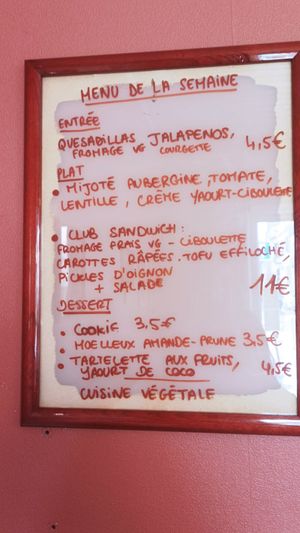 MENU DE LA SEMAINE
ENTRÉE
QUESADILLAS JALAPENOS,
FROMAGE VG COURGETTE 4,5€
PLAT
• MIJOTÉ AUBERGINE, TOMATE,
LENTILLE, CRÈME YAOURT-CIBOULETTE
• CLUB SANDWICH :
FROMAGE FRAIS VG - CIBOULETTE
CAROTTES RÂPÉES. TOFU EFFILOCHÉ,
PICKLES D'OIGNON
+ SALADE 11€
DESSERT
• COOKIE 3,5€
• MOELLEUX AMANDE-PRUNE 3,5€
• TARTELETTE AUX FRUITS,
YAOURT DE COCO 4,5€
CUISINE VÉGÉTALE